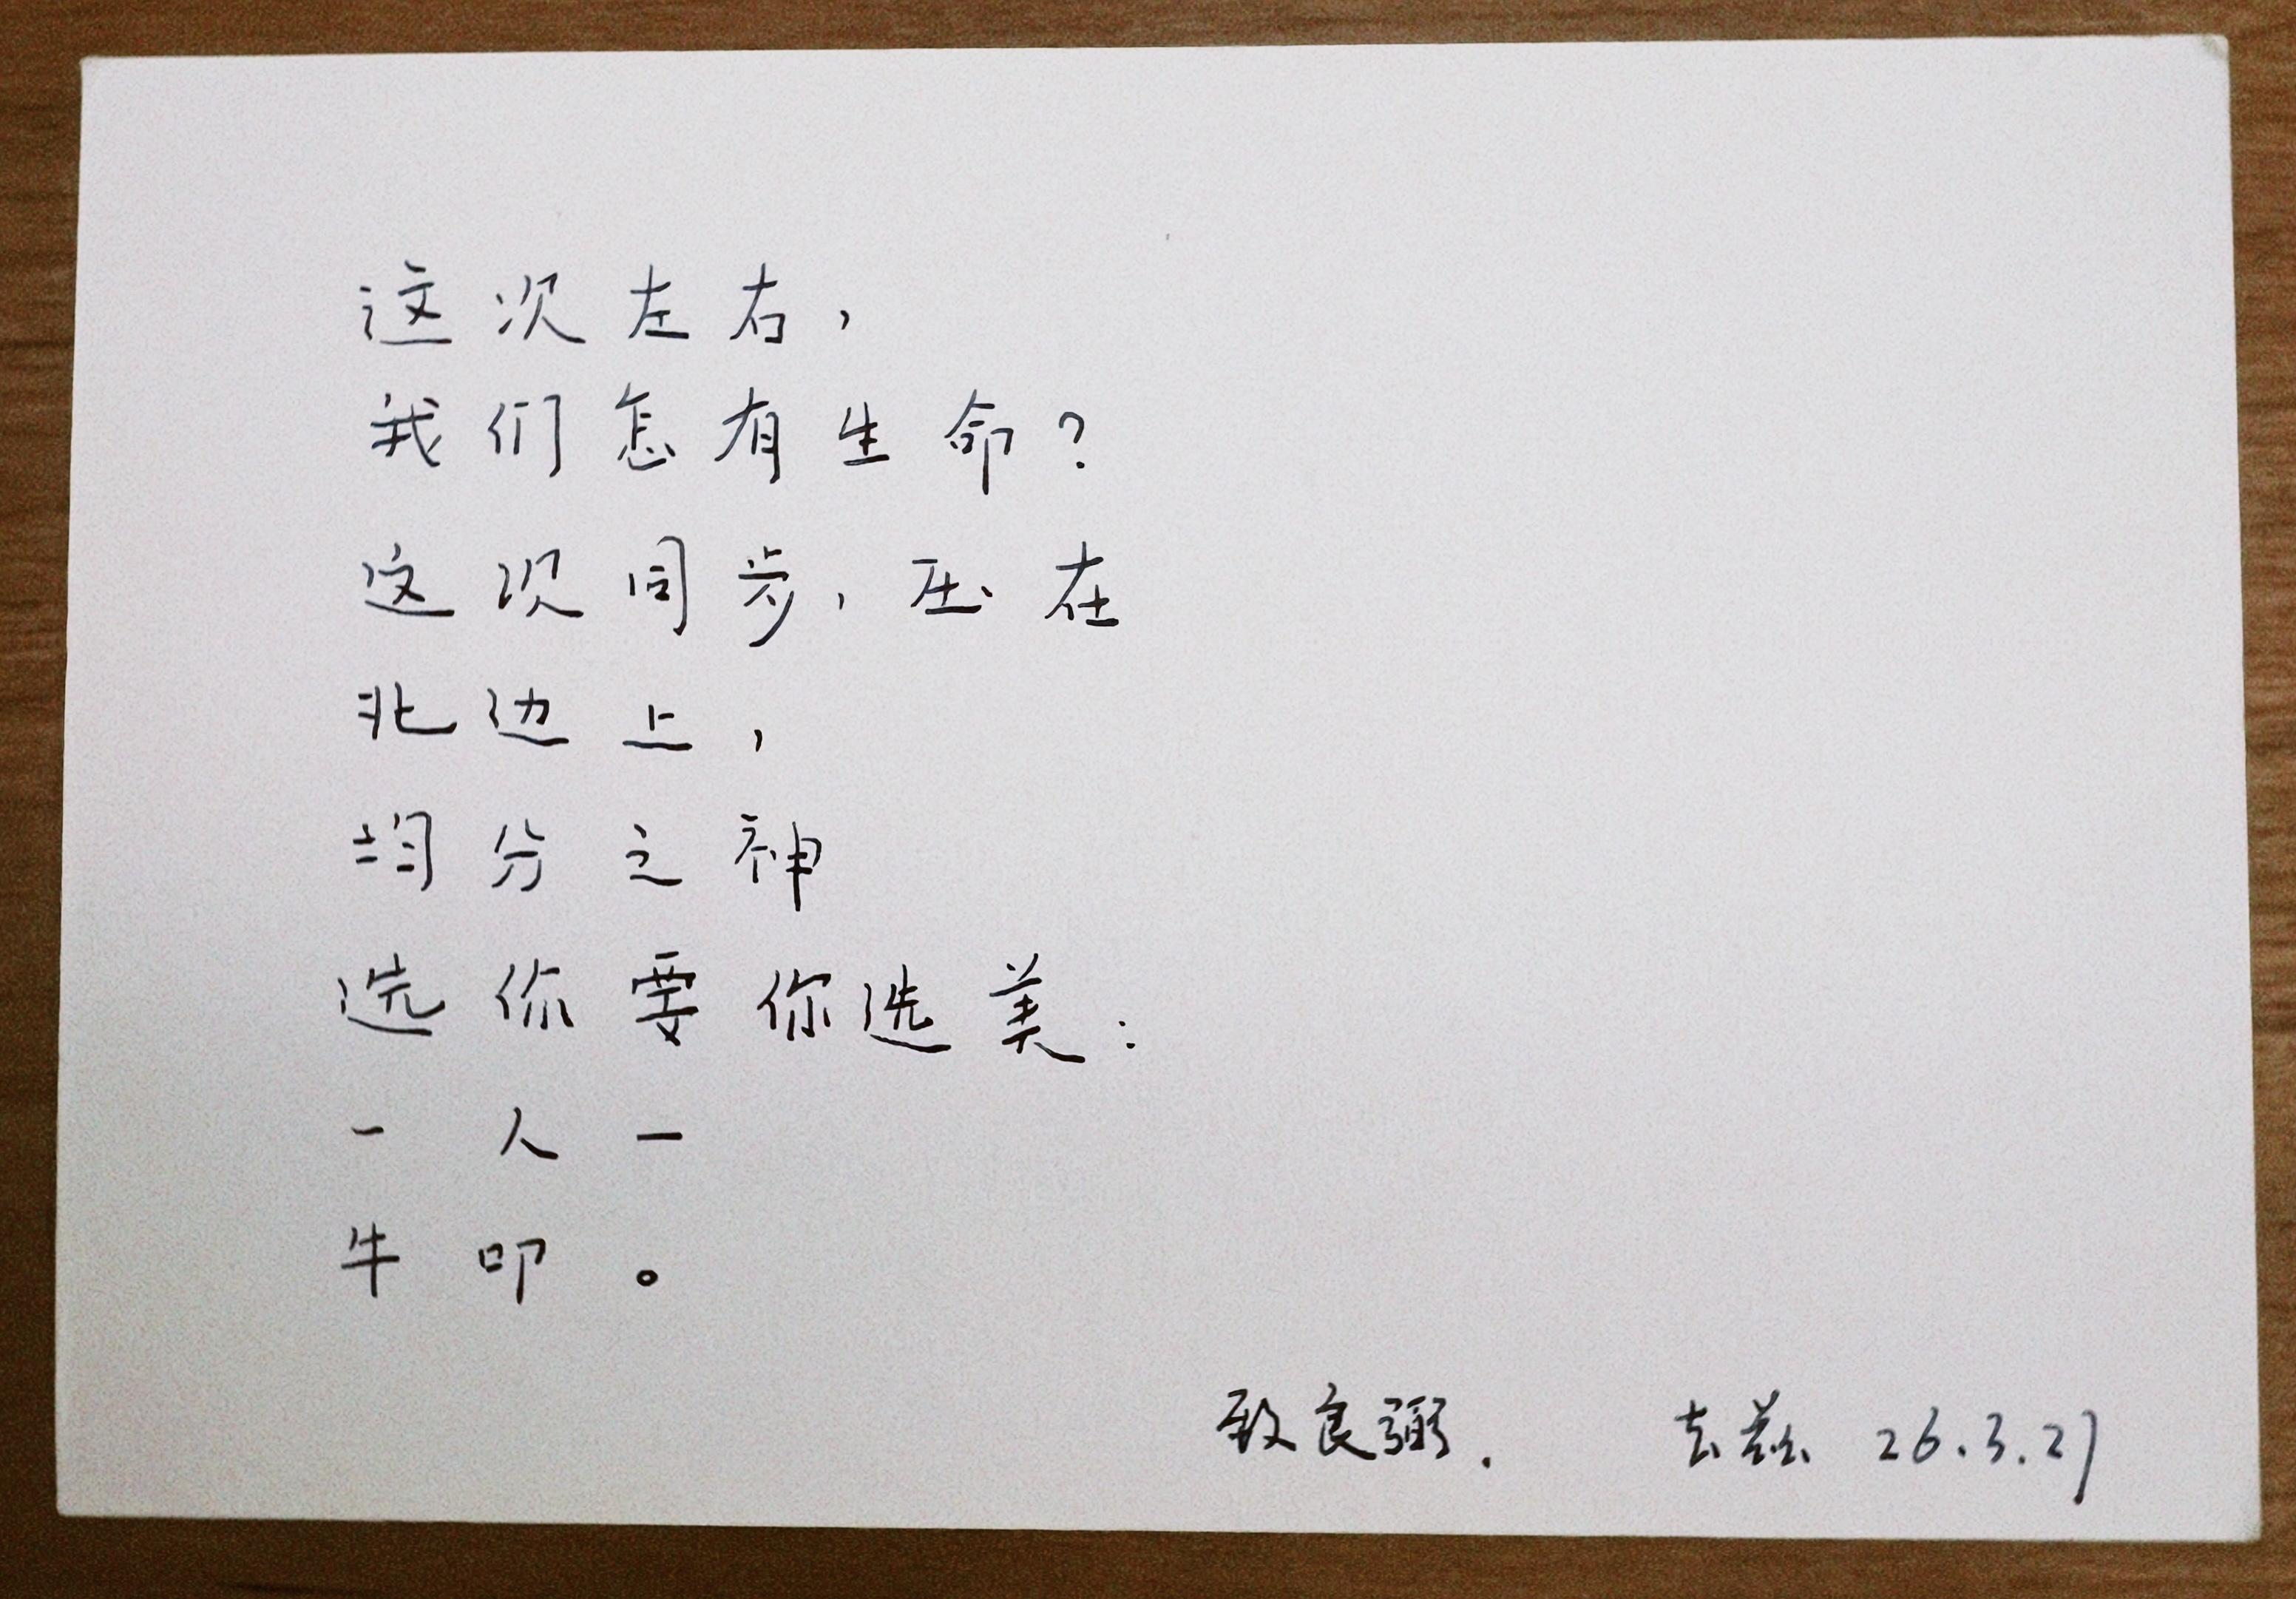 这次左右，
我们怎有生命？
这次同步，压在
北边上，
均分之神
选你要你选美：
一人一
牛叩。
致良弼. 去 26.3.27